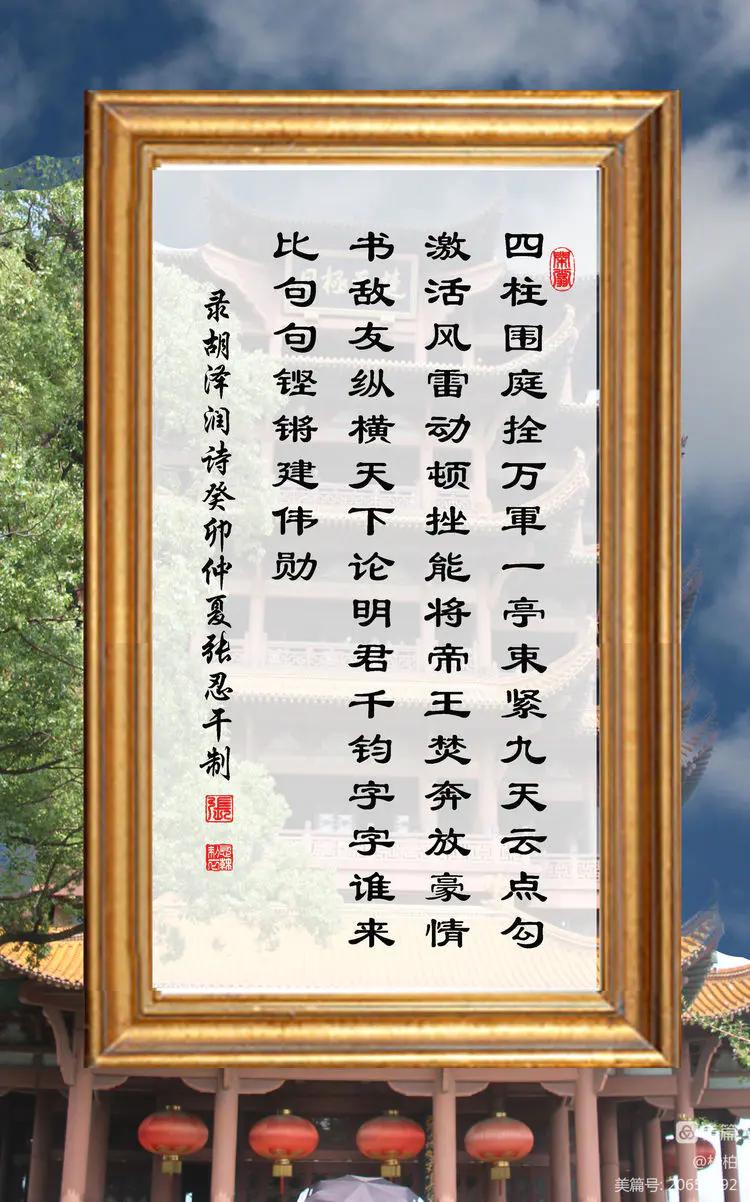 四柱围庭拴万軍一亭束紧九天云点勾
激活风雷动顿挫能将帝王焚奔放豪情
书敌友纵横天下论明君千钧字字谁来
比句句铿锵建伟勋
录胡泽润诗癸卯仲夏张忍干制
美篇
美篇号: